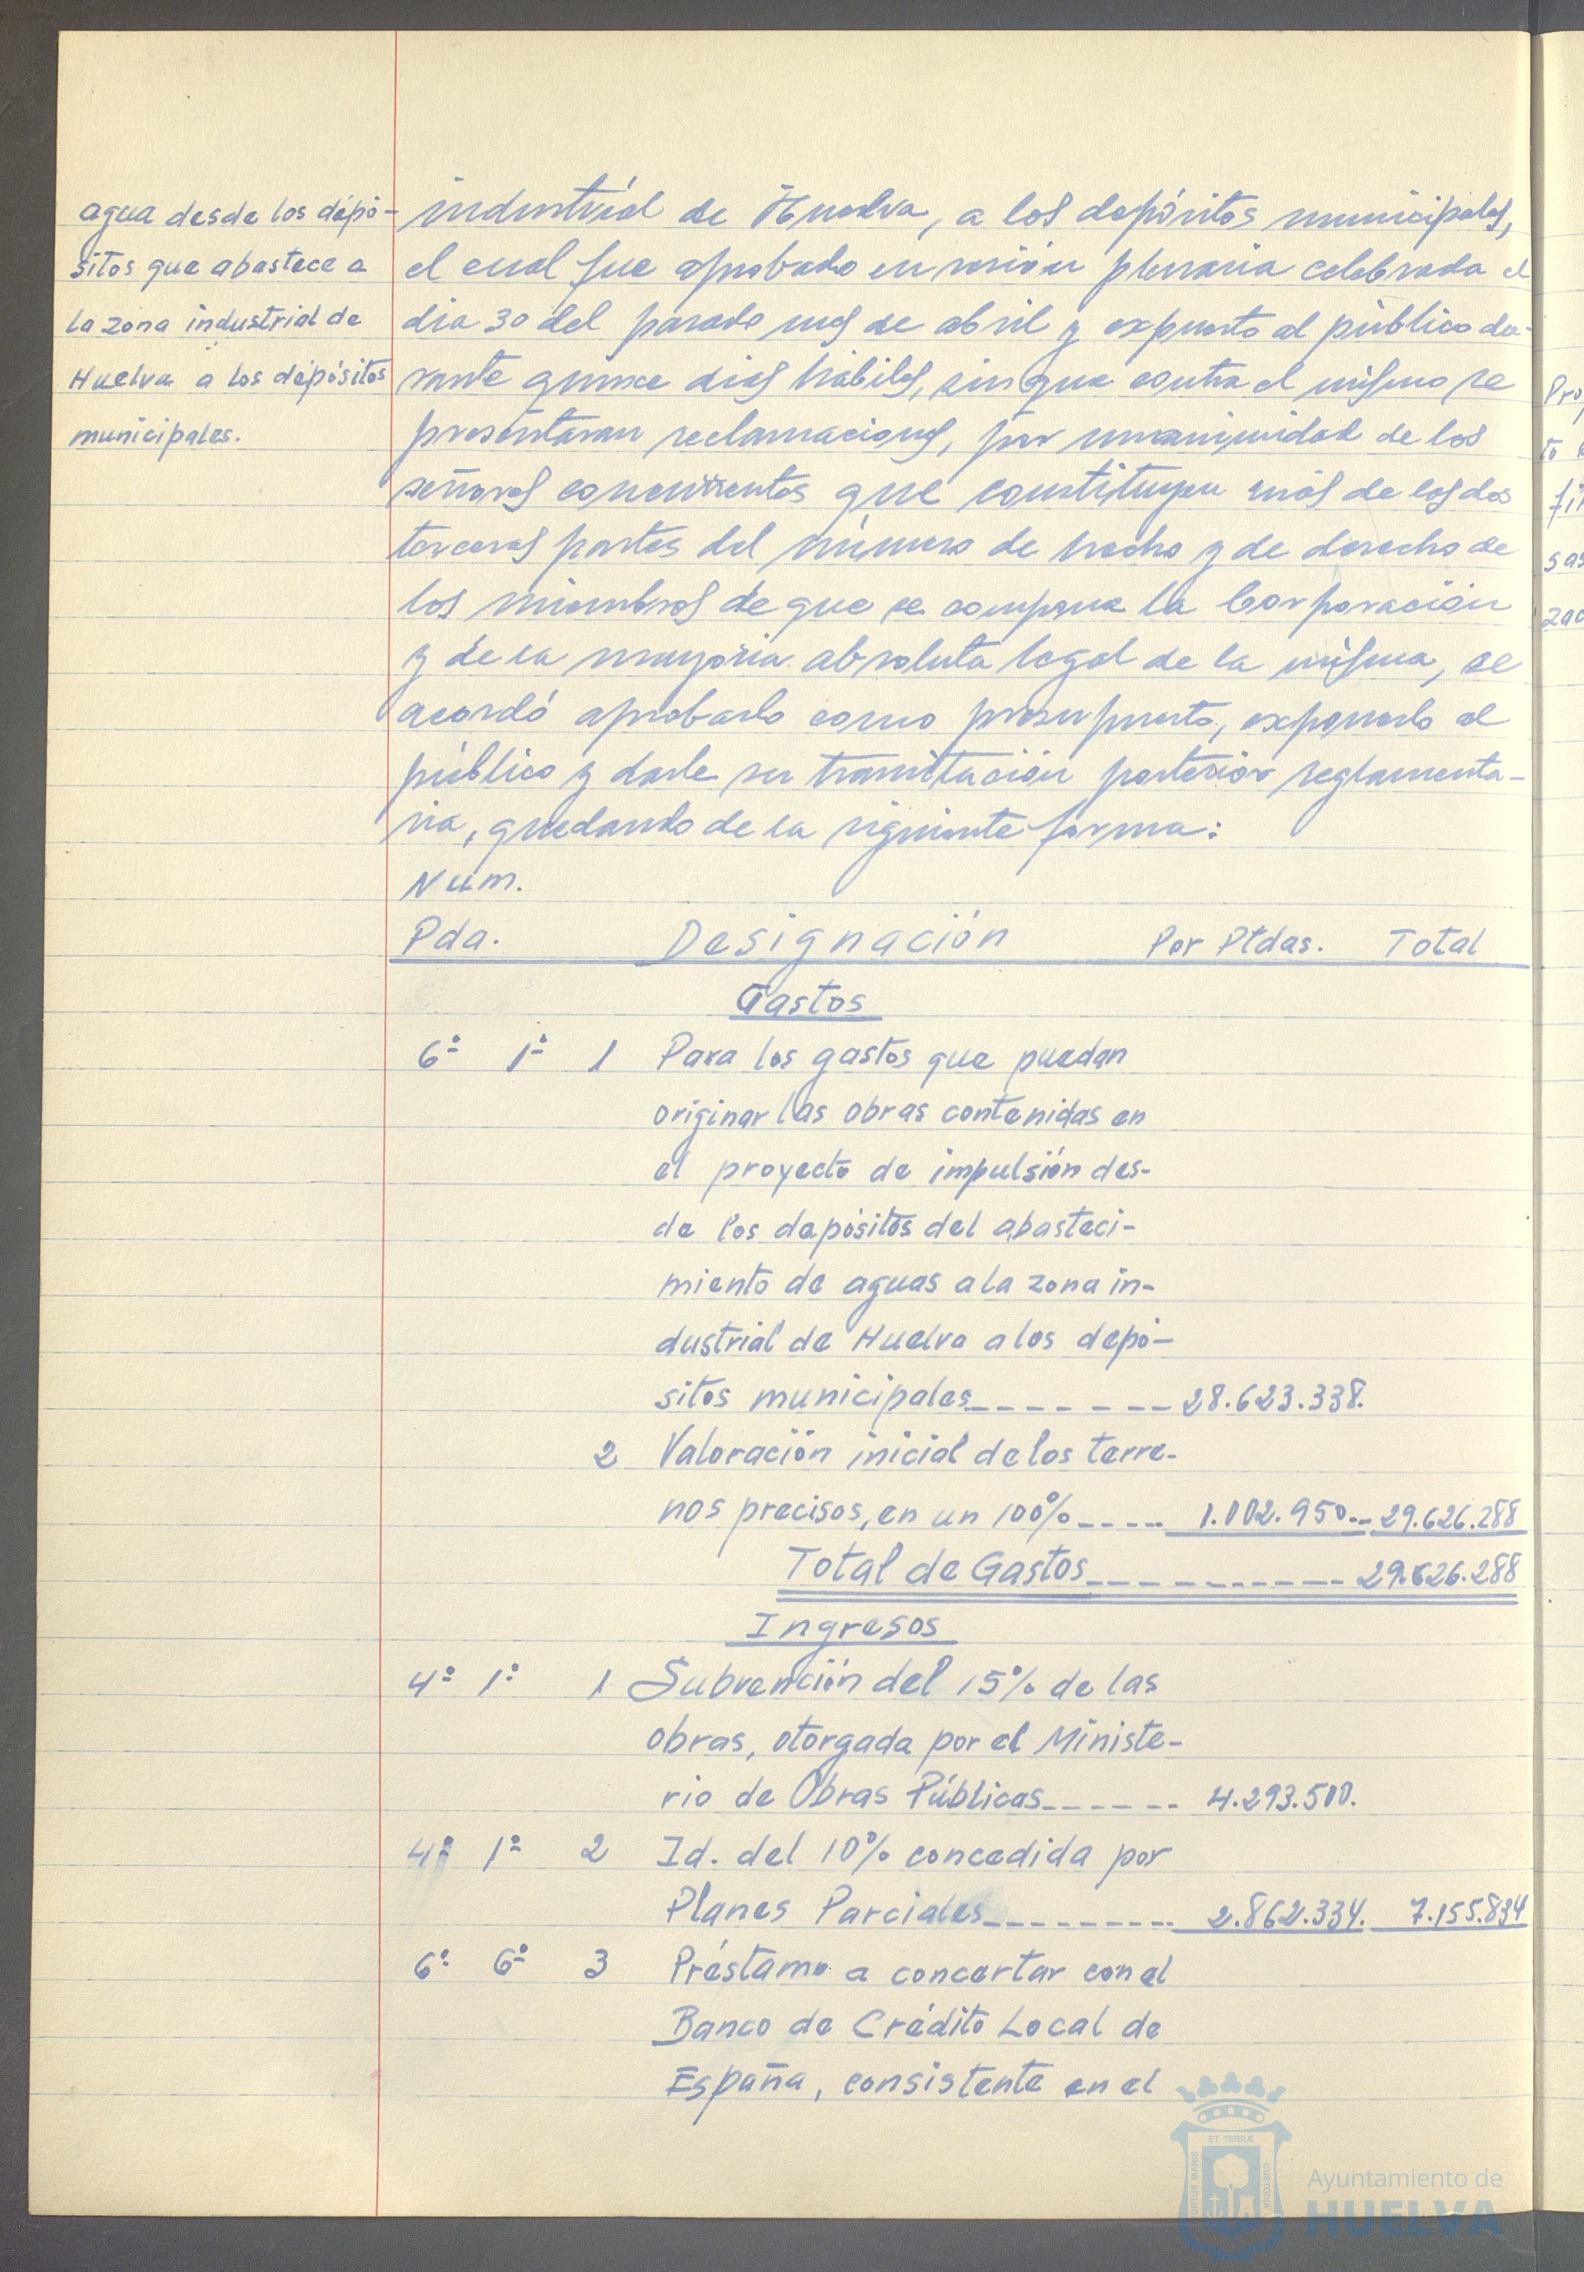 agua desde los dépó-
sitos que abastece a
la zona industrial de
Huelva a los dépósitos
municipales.
industrial de Huelva, a los depósitos municipales,
el cual fue aprobado en sesión plenaria celebrada el
dia 30 del pasado mes de abril y expuesto al público du-
rante quince dias hábiles, sin que contra el mismo se
presentaran reclamaciones, por unanimidad de los
señores concurrentes que constituyen más de las dos
terceras partes del número de hecho y de derecho de
los miembros de que se compone la Corporación
y de la mayoria absoluta legal de la misma, se
acordó aprobarlo como presupuesto, exponerlo al
público y darle su tramitación posterior reglamenta-
ria, quedando de la siguiente forma:
Num.
Pda. Designación Por Ptdas. Total
Gastos
6º 1º 1 Para los gastos que puedan
originar las obras contenidas en
el proyecto de impulsión des-
de los depósitos del abasteci-
miento de aguas a la zona in-
dustrial de Huelva a los depó-
sitos municipales_ _ _ _ _ _ _ 28.623.338.
2 Valoración inicial de los terre-
nos precisos, en un 100%_ _ _ _ 1.002.950.- 29.626.288
Total de Gastos_ _ _ _ _ _ _ _ _ _ 29.626.288
Ingresos
4º 1º 1 Subvención del 15% de las
obras, otorgada por el Ministe-
rio de Obras Públicas_ _ _ _ _ _ 4.293.500.
4º 1º 2 Id. del 10% concedida por
Planes Parciales_ _ _ _ _ _ _ _ _ 2.862.334. 7.155.834
6º 6º 3 Préstamo a concertar con el
Banco de Crédito Local de
España, consistente en el
ET TERRÆ
PORTUS MARIS
CUSTODIA
Ayuntamiento de
HUELVA